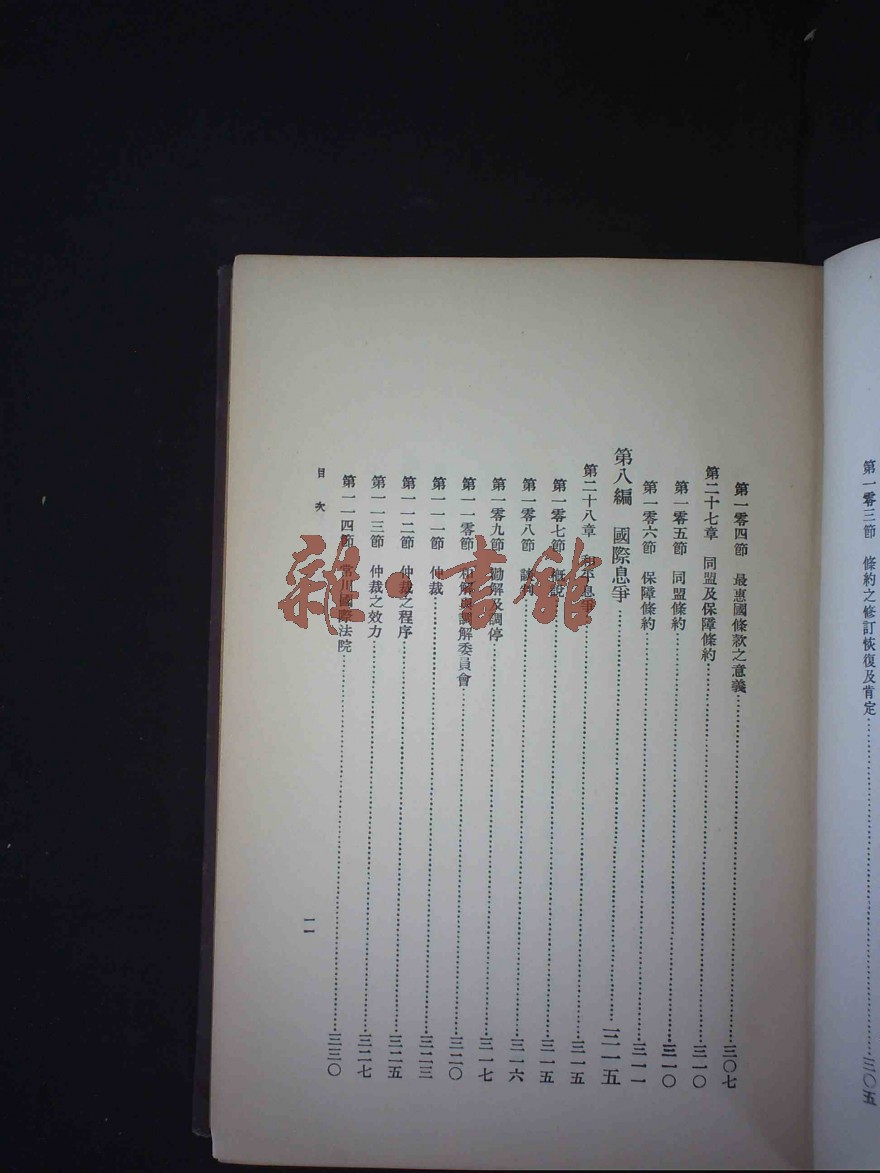 第一零三節　條約之修訂恢復及肯定……三〇五
第一零四節　最惠國條款之意義……三〇七
第二十七章　同盟及保障條約……三一〇
第一零五節　同盟條約……三一〇
第一零六節　保障條約……三一一
第八編　國際息爭……三一五
第二十八章　和平息爭……三一五
第一零七節　概說……三一五
第一零八節　談判……三一六
第一零九節　勸解及調停……三一七
第一一零節　和解與調解委員會……三二〇
第一一一節　仲裁……三二三
第一一二節　仲裁之程序……三二五
第一一三節　仲裁之效力……三二七
第一一四節　常川國際法院……三三〇
目次
一一
雜·書館